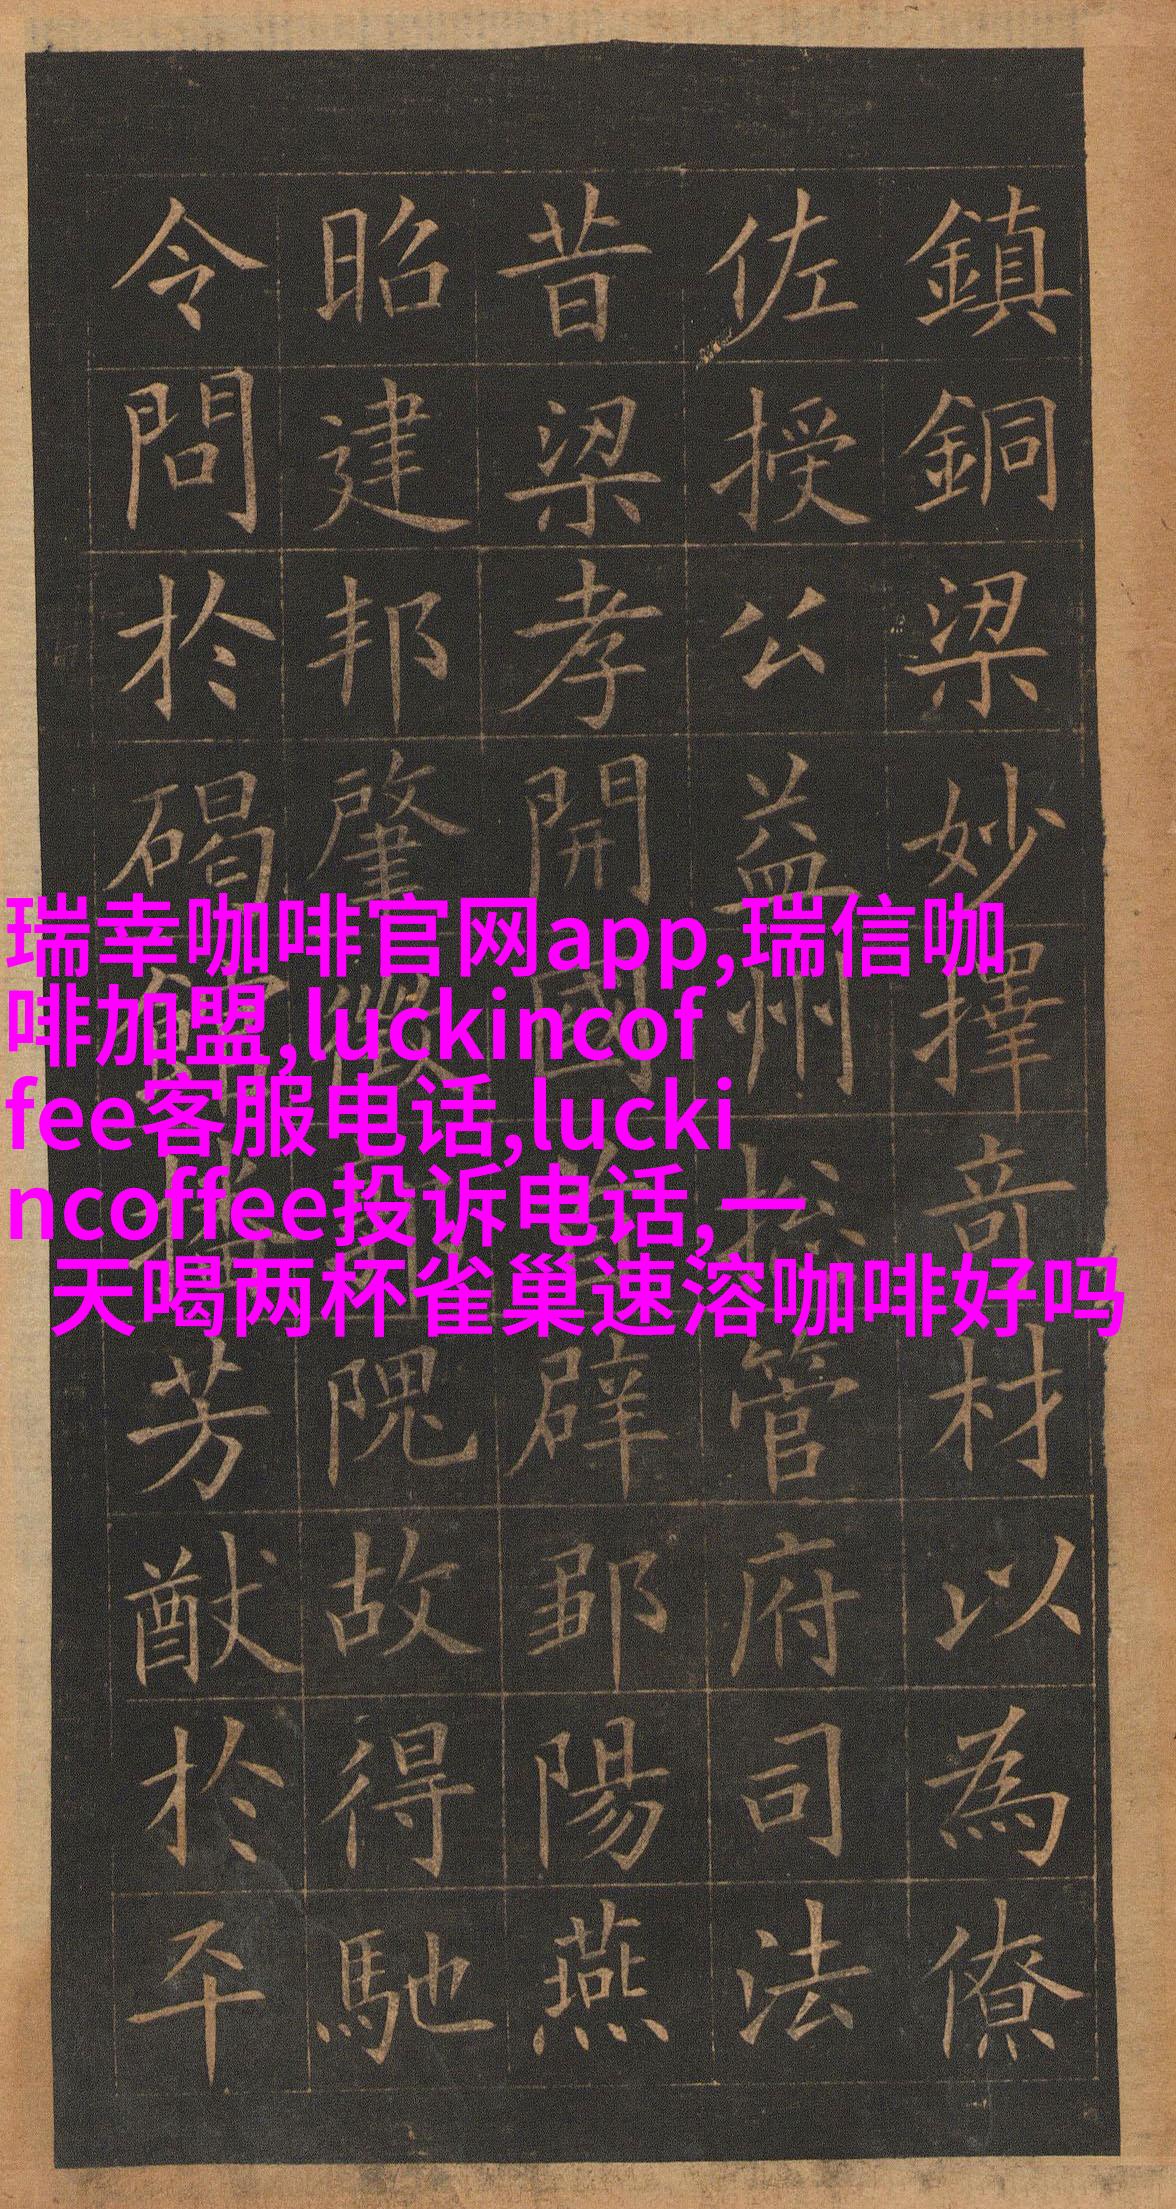 鎮銅梁妙擇奇材以為僚
佐授公益州揔管府司法
昔梁孝開國辟鄒陽燕
昭建邦肇隗故得馳
令問於碣芳猷於平
瑞幸咖啡官网app,瑞信咖
啡加盟,luckincof
fee客服电话,lucki
ncoffee投诉电话,一
天喝两杯雀巢速溶咖啡好吗